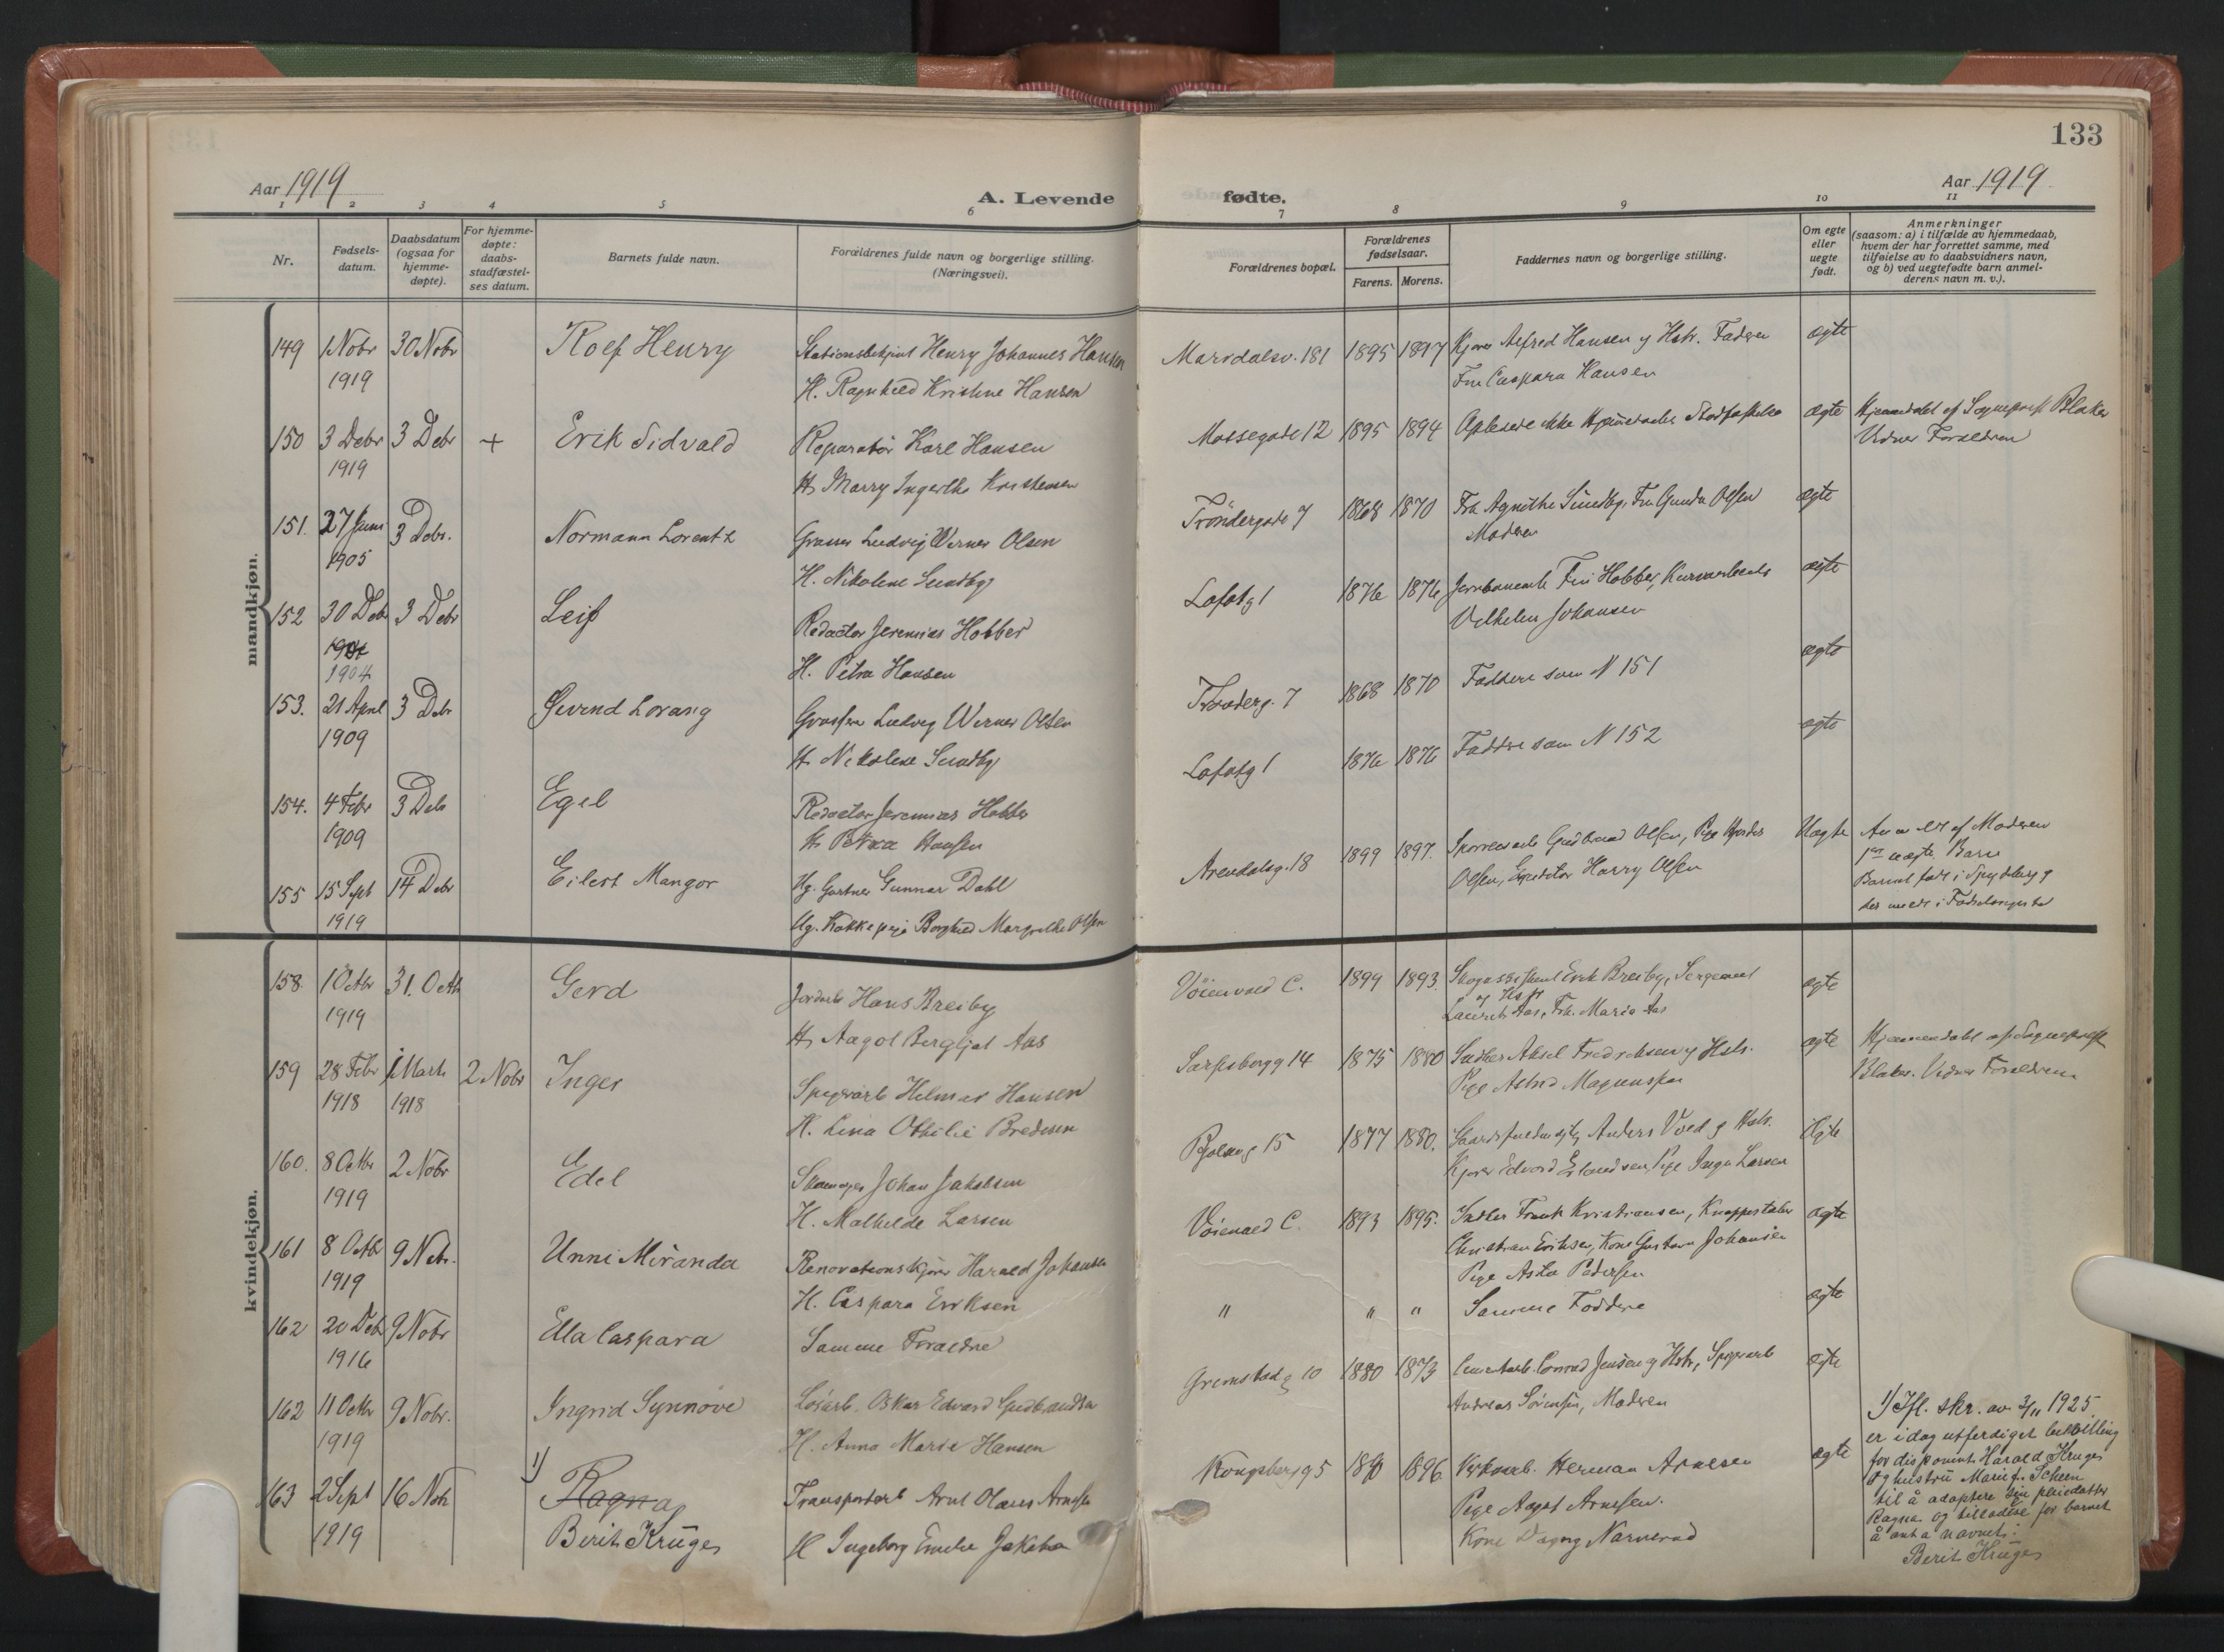 133
Aar 1919
A. Levende
fødte.
Aar 1919
1 2 3 4 5 6 7 8 9 10 11
Nr.
Fødsels-
datum.
Daabsdatum
(ogsaa for
hjemme-
døpte).
For hjemme-
døpte:
daabs-
stadfæstel-
ses datum.
Barnets fulde navn.
Forældrenes fulde navn og borgerlige stilling.
(Næringsvei).
Forældrenes bopæl.
Forældrenes
fødselsaar.
Farens. Morens.
Faddernes navn og borgerlige stilling.
Om egte
eller
uegte
født.
Anmerkninger
(saasom: a) i tilfælde av hjemmedaab,
hvem der har forrettet samme, med
tilføielse av to daabsvidners navn,
og b) ved uegtefødte barn anmel-
derens navn m. v.).
mandkjøn.
149 1 Nobr 30 Nobr Rolf Henry Stationsbetjent Henry Johannes Hansen Maridalsv. 181 1895 1897 Kjører Alfred Hansen og Hstr. Faderen ægte
1919 H. Ragnhild Kristine Hansen Fru Caspara Hansen
150 3 Debr 3 Debr + Erik Sidvald Reparatør Karl Hansen Mossegade 12 1895 1894 ikke ægte Hjemmedøbt af Sogneprest Blakar
1919 H. Marry Kristensen Vidner Forældrene
151. 27 Juni 3 Debr. Normann Lorentz Grosser Ludvig Werner Olsen Trondergade 7 1868 1870 Frk. Agnethe Sundby, Fru Gunda Olsen ægte
1905 H. Nikolene Sundby Moderen
152 30 Debr 3 Debr Leif Redactør Jeremias Hobber Lofotg 1 1876 1876 Fru Hobber, ægte
1904 H. Petra Hansen Vilhelm Johansen
1904
153. 21 April 3 Debr Øivind Lorang Grosserer Ludvig Werner Olsen Tronderg. 7 1868 1870 Faddere som N 151 ægte
1909 H. Nikolene Sundby
154. 4 Febr 3 Debr Egil Redactør Jeremias Hobber Lofotg 1 1876 1876 Faddere som N 152 ægte
1909 H. Petra Hansen
155 15 Sept 14 Debr Eilert Mangor Ug. Gartner Gunnar Dahl Arendalsg. 18 1899 1897. Gudbrand Olsen, Pige Uægte af Moderen
1919 Ug. Kokkepige Borghild Margrethe Olsen Olsen, Harry Olsen 1ste uægte Barn
Barnet født i Spydeberg
der meldt i Fødselsregister
kvindekjøn.
158 1 Octbr 31. Octb Gerd Jordarb Hans Breiby Vøienvold C. 1899 1893. Erik Breiby, Sergeant ægte
1919 H. Aagot Bergljot Aas og Hstr
Laurits Aas, Frk. Marie Aas
159 28 Febr 1 Marts 2 Nobr Inger Spigerarb Hilmar Hansen Sarpsborgg 14 1875 1880 Sadler Aksel Fredriksen og Hstr. ægte Hjemmedøbt af Sogneprest
1918 1918 H. Lina Othilie Bredesen Pige Astrid Magnussen Blakar. Vidner Forældrene
160. 8 Octbr 2 Nobr Edel Skomager Johan Jakobsen Bjølseng 15 1877 1880. Anders Vold og Hstr. Ægte
1919 H. Mathilde Larsen Kjører Edvard Erlandsen, Pige Inga Larsen
161 8 Octbr 9 Nobr. Unni Miranda Renovationskjører Harald Johansen Vøienvold C. 1893 1895. Sadler Frank Kristiansen, ægte
1919 H. Caspara Eriksen Christian Eriksen, Kone Gustava Johansen
Pige Asta Pedersen
162 20 Debr 9 Nobr Ella Caspara Samme Forældre " " " Samme Faddere ægte
1916
162 11 Octbr 9 Nobr. Ingrid Synnøve Løsarb. Oskar Edvard Gudbrandsen Grimstadg 10 1880 1873 Conrad Jensen og Hstr, Spigerarb ægte
1919 H. Anna Marie Hansen Andreas Sørensen, Moderen
163 2 Sept 16 Nobr 1) Ragna Transportarb Arnt Olaus Arnesen Kongsbergg 5 1896 Herman Arnesen ægte
1919 Berit Krüger H. Ingeborg Emilie Jakobsen Pige Aagot Arnesen.
Kone Dagny Narverud
1) Ifl. skr. av 3/11 1925
er idag utferdiget bevilling
for disponent Harald Krüger
og hustru Marie f. Scheen
til å adoptere sin pleiedatter
Ragna og tilladelse for barnet
å anta navnet:
Berit Krüger